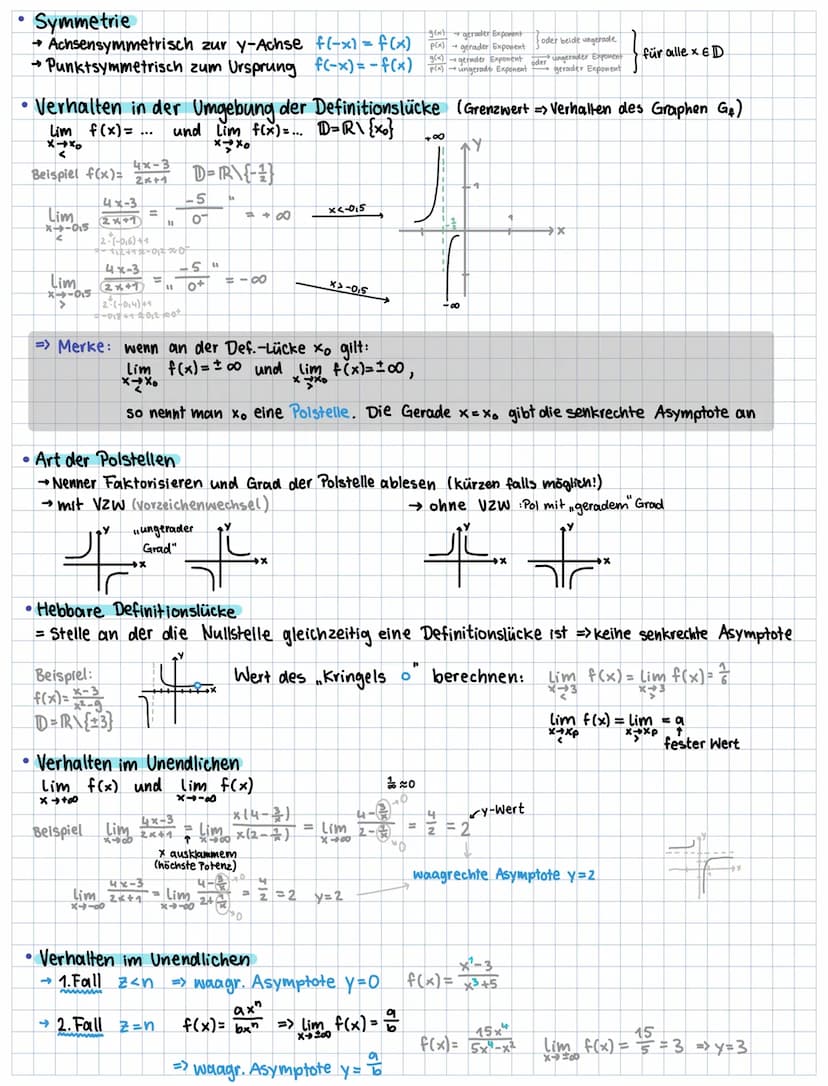 • Symmetrie
→ Achsensymmetrisch zur y-Achse f(-x) = f(x) g(x)/p(x) → gerader Exponent → gerader Exponent } oder beide ungerade
→ Punktsymmetrisch zum Ursprung f(-x) = -f(x) g(x)/p(x) → gerader Exponent → ungerade Exponent oder → ungerader Exponent → gerader Exponent } für alle x ∈ D
• Verhalten in der Umgebung der Definitionslücke (Grenzwert => Verhalten des Graphen Gf)
lim x→x₀ < f(x) = ... und lim x→x₀ > f(x) = ... D=R\{x₀}
Beispiel f(x) = (4x-3)/(2x+1) D=R\{-1/2}
Lim x→-0,5 < (4x-3)/(2x+1) = „-5/0⁻“ = +∞ x<-0,5
2·(-0,6)+1
= -1,2+1 = -0,2 ≈ 0⁻
Lim x→-0,5 > (4x-3)/(2x+1) = „-5/0⁺“ = -∞ x>-0,5
2·(-0,4)+1
= -0,8+1 = 0,2 ≈ 0⁺
+∞ y 1 -1/2 1 x -∞
=> Merke: wenn an der Def.-Lücke x₀ gilt:
lim x→x₀ < f(x) = ±∞ und lim x→x₀ > f(x) = ±∞,
so nennt man x₀ eine Polstelle. Die Gerade x = x₀ gibt die senkrechte Asymptote an
• Art der Polstellen
→ Nenner Faktorisieren und Grad der Polstelle ablesen (kürzen falls möglich!)
→ mit VZW (Vorzeichenwechsel) → ohne VZW : Pol mit „geradem“ Grad
y x „ungerader Grad“ y x y x y x
• Hebbare Definitionslücke
= Stelle an der die Nullstelle gleichzeitig eine Definitionslücke ist => keine senkrechte Asymptote
Beispiel: y x Wert des „Kringels o“ berechnen: lim x→3 < f(x) = lim x→3 > f(x) = 1/6
f(x) = (x-3)/(x²-9)
D=R\{±3} lim x→xp < f(x) = lim x→xp > = a
↑ fester Wert
• Verhalten im Unendlichen
lim x→+∞ f(x) und lim x→-∞ f(x) 1/∞ ≈ 0
Beispiel lim x→∞ (4x-3)/(2x+1) = lim x→∞ x(4-3/x)/x(2-1/x) = lim x→∞ (4-3/x →0)/(2-3/x →0) = 4/2 = 2 y-Wert
↑ x ausklammern
(höchste Potenz)
waagrechte Asymptote y=2
lim x→-∞ (4x-3)/(2x+1) = lim x→-∞ (4-3/x →0)/(2+1/x →0) = 4/2 = 2 y=2
y x
• Verhalten im Unendlichen
→ 1. Fall z<n => waagr. Asymptote y=0 f(x) = (x¹-3)/(x³+5)
→ 2. Fall z=n f(x) = axⁿ/bxⁿ => lim x→±∞ f(x) = a/b f(x) = 15x⁴/(5x⁴-x²) lim x→±∞ f(x) = 15/5 = 3 => y=3
=> waagr. Asymptote y = a/b